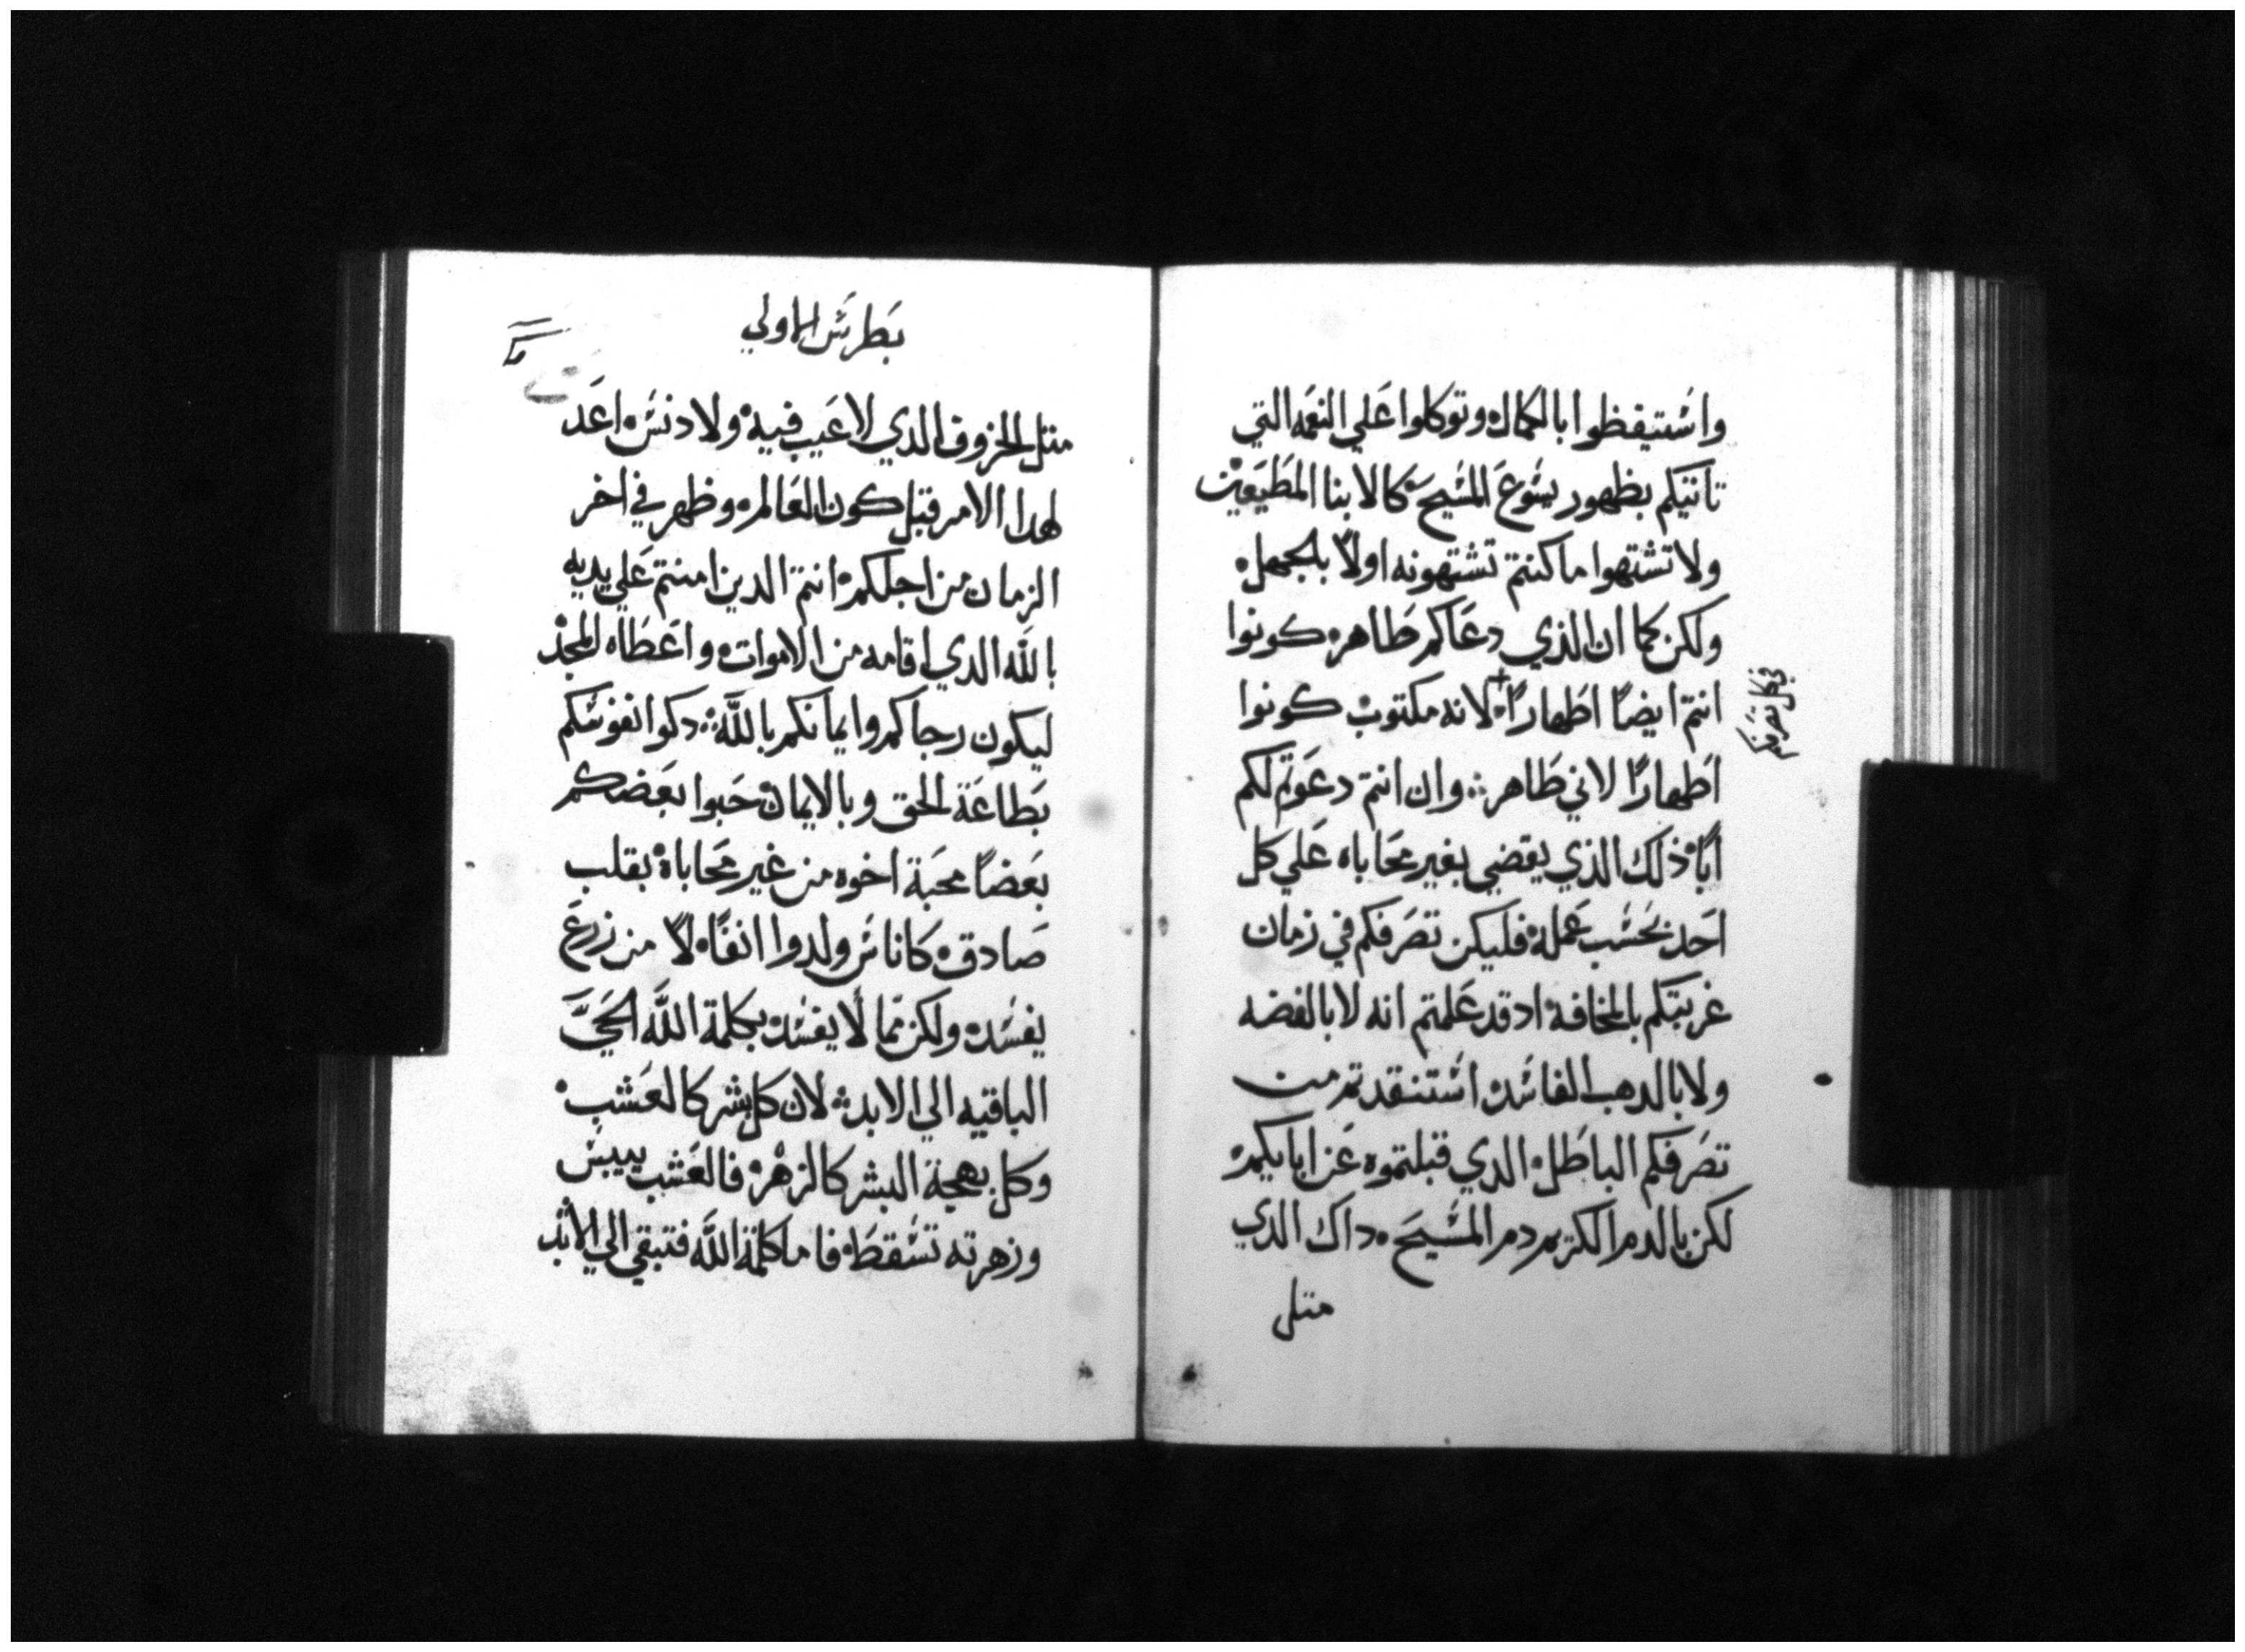 واشتيقظوا بالكمال وتوكلوا علي النعمه التي
تاتيكم بظهور يشوع المشيح كالابنا المطيعين
ولا تشتهوا ما كنتم تشتهونه اولاً بالجهل
ولكن كما ان الذي دعاكم طاهر كونوا
انتم ايضاً اطهاراً لانه مكتوب كونوا
في كل تصرفكم
اطهارًا لاني طاهر وان انتم دعوتم لكم
ابًا ذلك الذي يقضي بغير محاباه علي كل
احد بحشب عمله فليكن تصرفكم في زمان
غربتكم بالمخافة اد قد علمتم انه لا بالفضه
ولا بالدهب الفاشد اشتنقدتم من
تصرفكم الباطل الدي قبلتموه عن ابايكم
لكن بالدم الكريم دم المشيح داك الدي
متل
بطرش الاولي
متل الخروف الدي لا عيب فيه ولا دنش اعد
لهدا الامر قبل كون العالم وظهر في اخر
الزمان من اجلكم انتم الدين امنتم علي يديه
بالله الدي اقامه من الاموات واعطاه المجد
ليكون رجاكم وايمانكم بالله دكوا نفوشكم
بطاعة الحق وبالايمان حبوا بعضكم
بعضاً محبة اخوه من غير محاباة بقلب
صادق كاناش ولدوا انفًا لا من زرع
يفشد ولكن مما لا يفشد بكلمة الله الحيَّ
الباقيه الي الابد لان كل بشر كالعشب
وكل بهجة البشر كالزهر فالعشب ييبش
وزهرته تشقط فاما كلمة الله فتبقي الي الابد